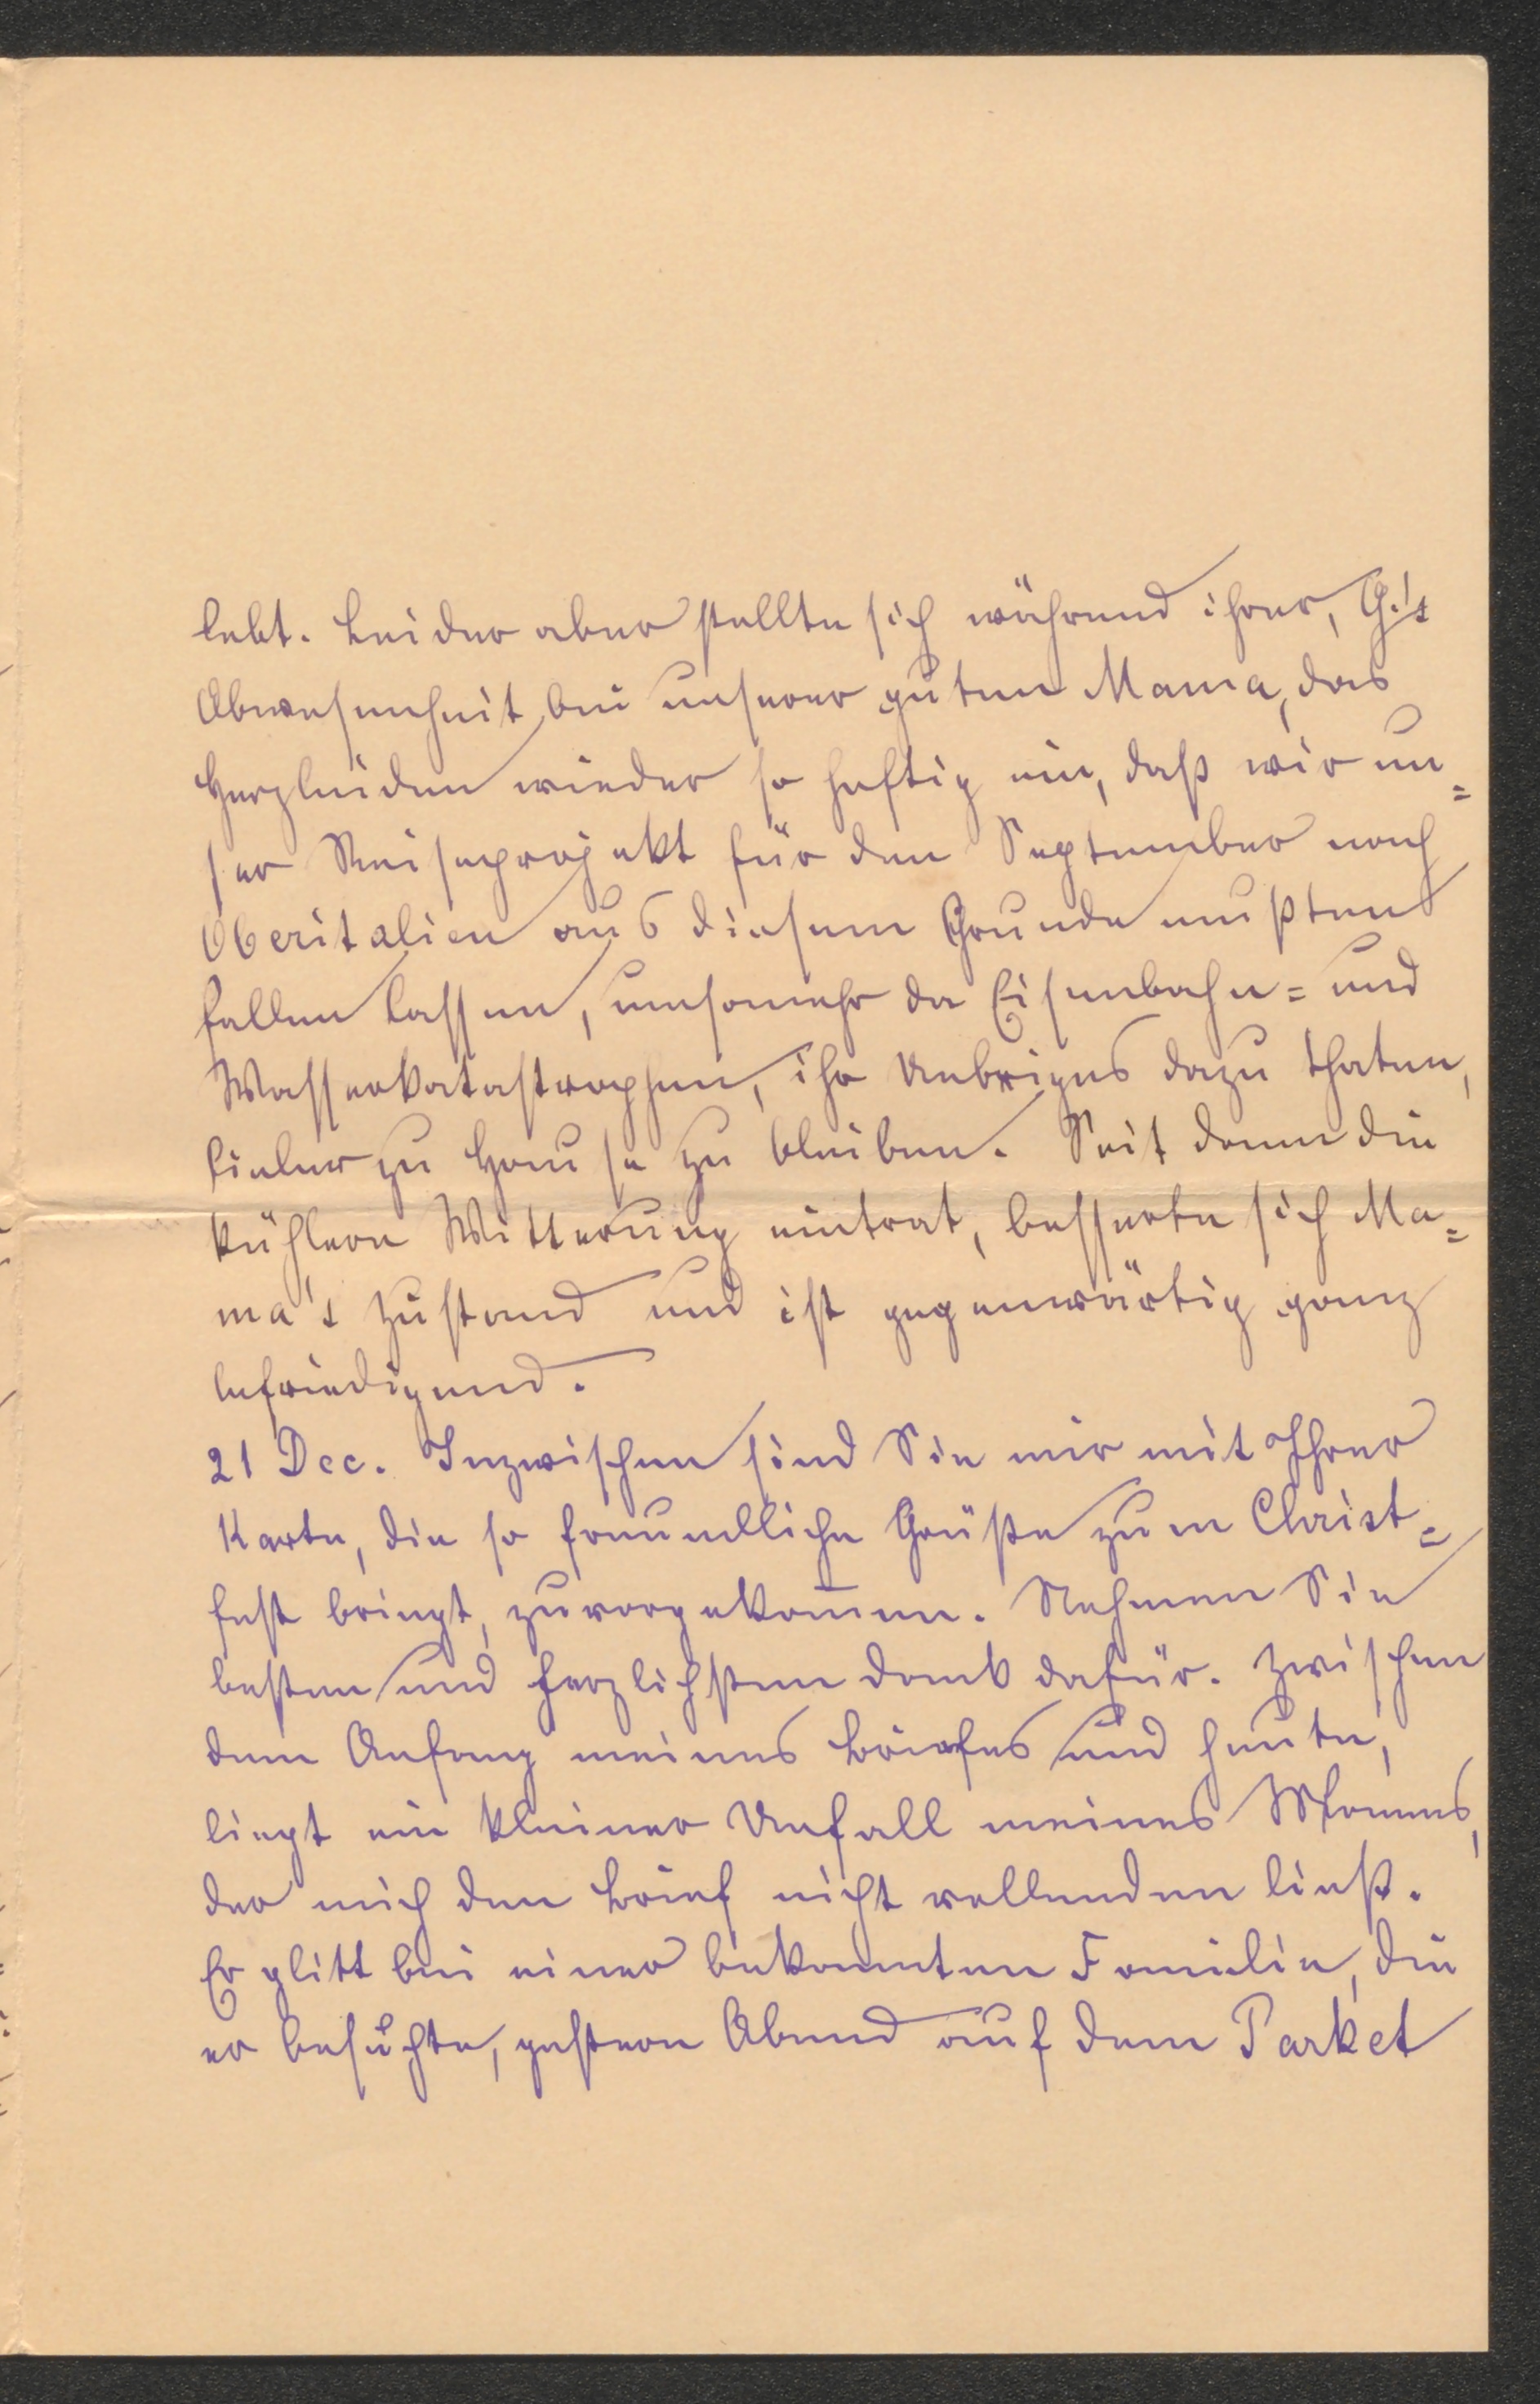 lebt. Leider aber stellte sich während ihrer, G.'s
Abwesenheit, bei unserer guten Mama, das
Herzleiden wieder so heftig ein, daß wir un=
ser Reiseprojekt für den September nach
Oberitalien aus diesem Grunde mußten
fallen lassen, umsomehr da Eisenbahn= und
Wasserkatastrophen, ihr Uebriges dazu thaten,
lieber zu Hause zu bleiben. Seit dann die
kühlere Witterung eintrat, besserte sich Ma=
ma's Zustand und ist gegenwärtig ganz
befriedigend.
21 Dec. Inzwischen sind Sie mir mit Ihrer
Karte, die so freundliche Grüße zum Christ=
fest bringt, zuvorgekom̅en. Nehmen Sie
besten und herzlichsten Dank dafür. Zwischen
dem Anfang meines Briefes und heute,
liegt ein kleiner Unfall meines Mannes,
der mich den Brief nicht vollenden ließ.
Er glitt bei einer bekannten Familie, die
er besuchte, gestern Abend auf dem Parket